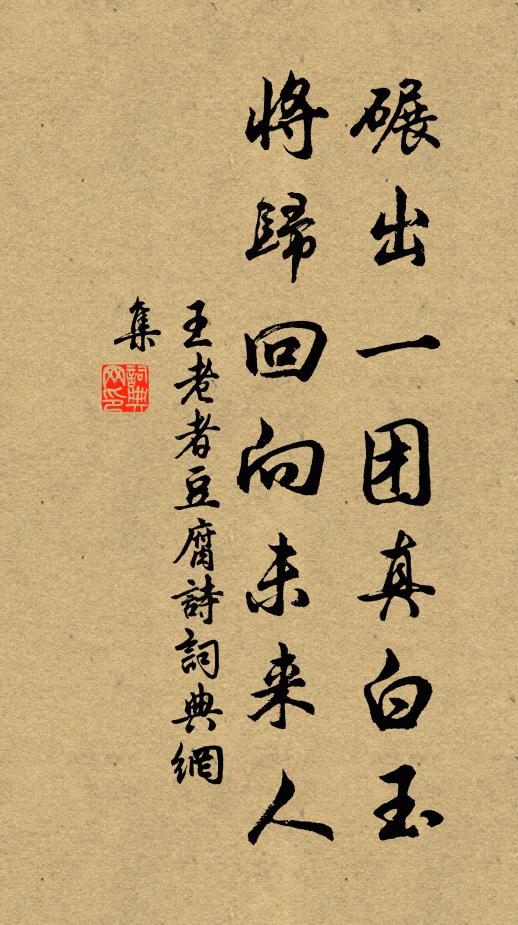 碾出一团真白玉
將歸回向未来人
王老者豆腐詩詞典網
集
詞典
网印